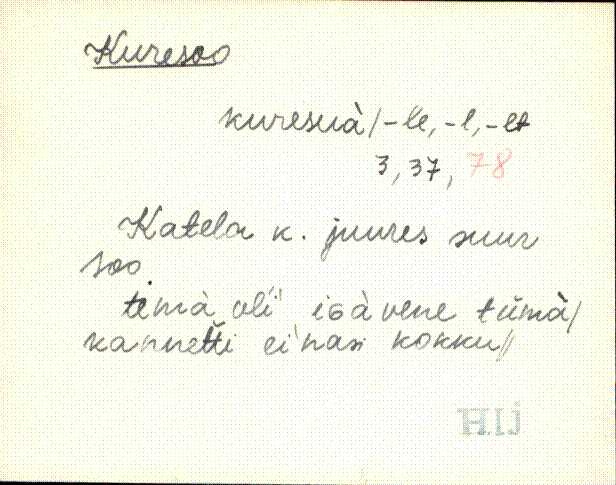 Kuresoo
kuresuà/-le, -l, -lt
3, 37, 78
Katela k. juures suur
soo.
temà oli isà vene tümà/
kannetti ei'nasi kokku//